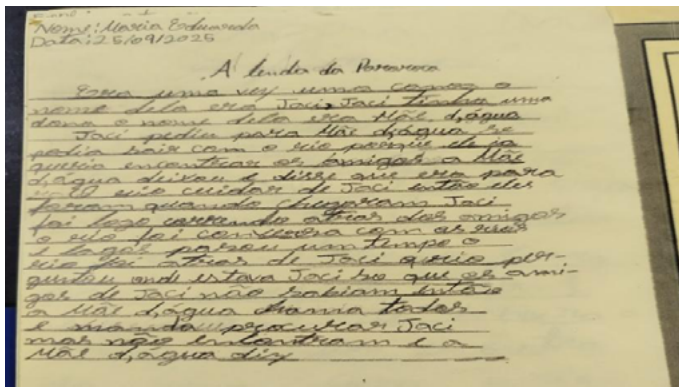 Nome: Maria Eduarda
Data: 25/09/2025
A lenda da Pororoca
Era uma vez uma canoa o
nome dela era Jaci, Jaci tinha uma
dona o nome dela era Mãe d,água
Jaci pediu para Mãe d,água se
podia sair com o rio porque ele ia
queria encontrar os amigos a Mãe
d,água deixou e disse que era para
o rio cuidar de Jaci então eles
foram quando chegaram Jaci
foi logo correndo atrias dos amigos
o rio foi conversa com os rios
e lagos pasou um tempo o
rio foi atras de Jaci per-
guntou onde estava Jaci so que os ami-
gos de Jaci não sabiam então
a Mãe d,água chama todos
e manda procurar Jaci
mas não encontram e a
Mãe d,água diz